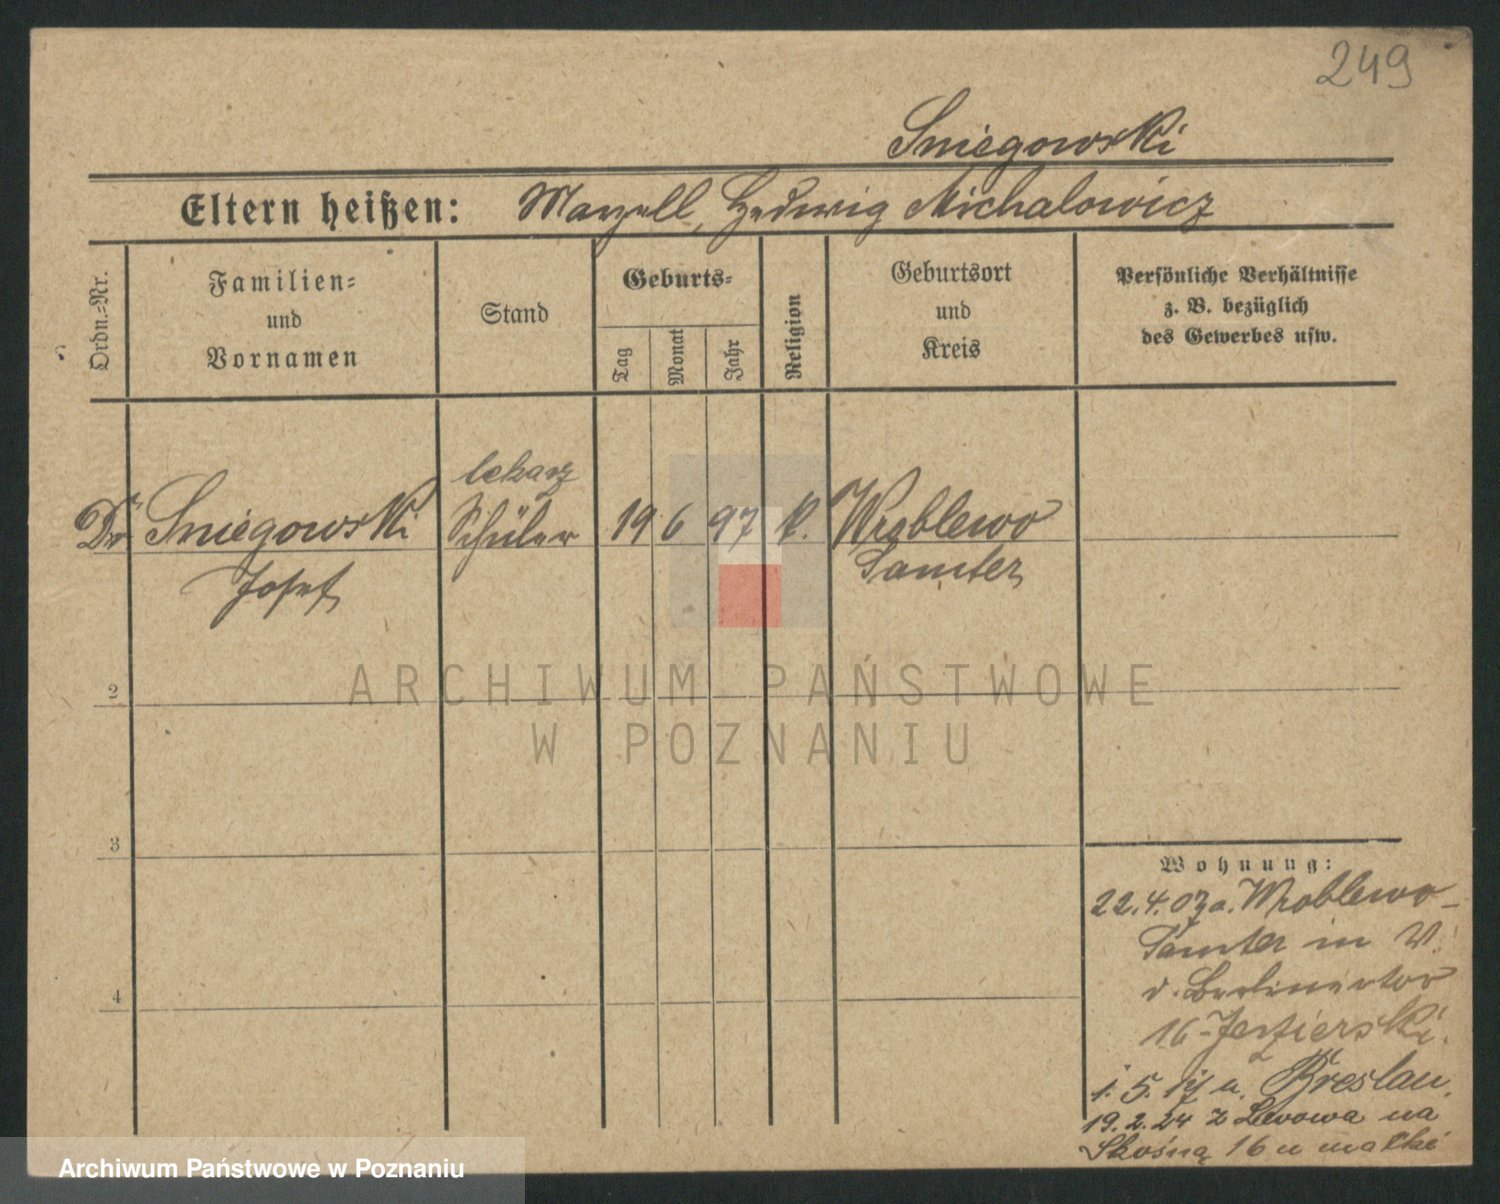 249
Sniegowski
Eltern heißen: Marzell, Hedwig Michalowicz
Ordn.-Nr.
Familien-
und
Vornamen
Stand
Geburts-
Tag
Monat
Jahr
Religion
Geburtsort
und
Kreis
Persönliche Verhältnisse
z. B. bezüglich
des Gewerbes usw.
lekarz
Dr Sniegowski Schüler 19 6 97 k. Wroblewo
Josef Samter
2
3
4
Wohnung:
22.4.07 a. Wroblewo-
Samter in
v. Berlinertor
16-Jezierski.
1.5.17 n. Breslau.
19.2.24 z Lwowa na
Skośną 16 u matki
ARCHIWUM PAŃSTWOWE
W POZNANIU
Archiwum Państwowe w Poznaniu